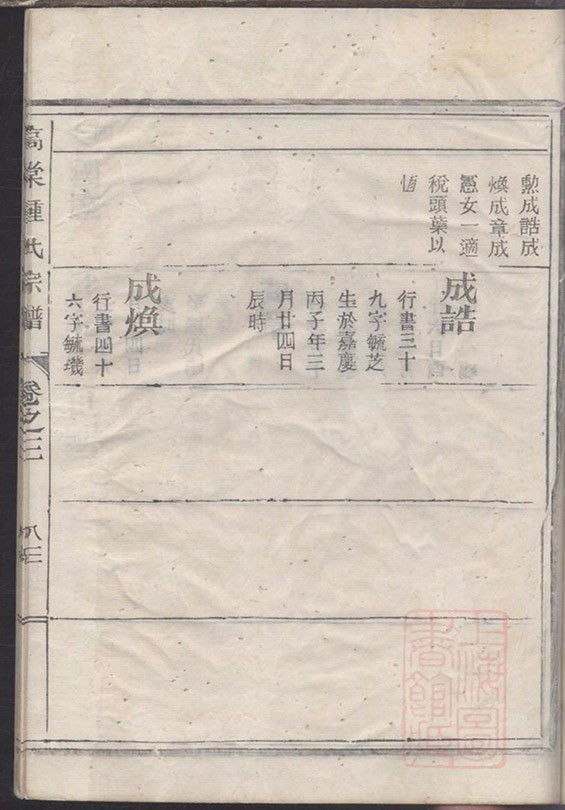 勲成誥成
煥成章成
憲女一適
稅頭葉以
恒
成誥
行書三十
九字毓芝
生於嘉慶
丙子年三
月廿四日
辰時
成煥
行書四十
六字毓璣
高棠鍾氏宗譜
卷之三
上海圖書館藏